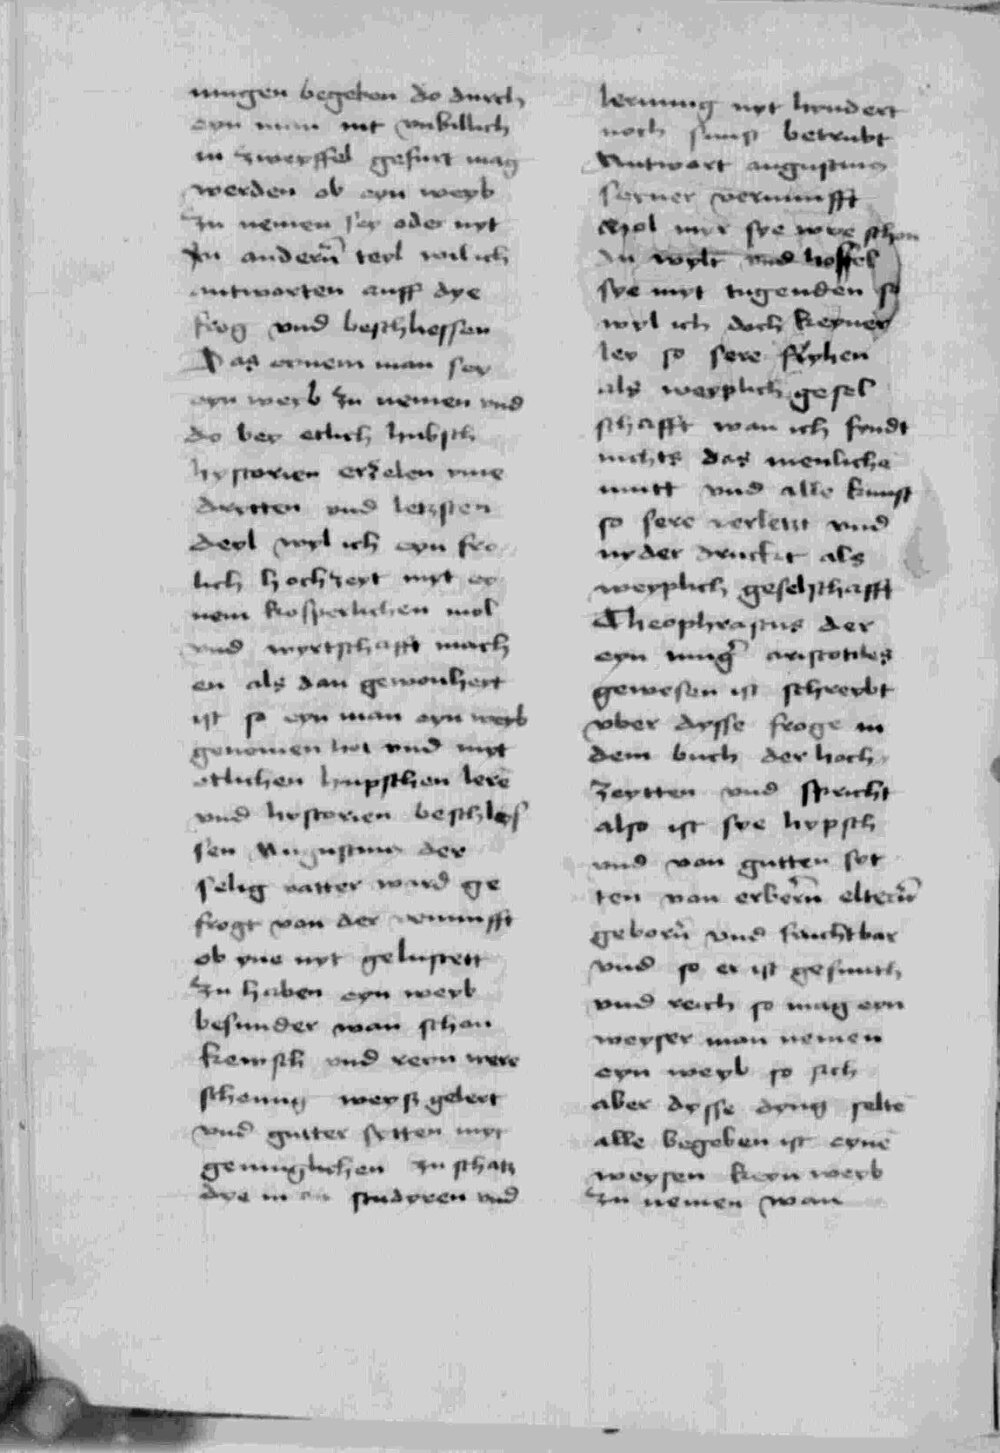 nungen begeben do durch
eyn man nit vnbillich
in zweyffel gefurt mag
werden ob eyn weyb
zu nemen sey oder nyt
Jn anderñ teyl wil ich
antworten auff dye
frog vnd beschliessen
Das eynem man sey
eyn weyb zu nemen vnd
do bey etlich hubsch
hystorien erzelen yme
drytten vnd letzsten
deyl wyl ich eyn fro
lich hochzeyt myt ey
nem kosperlichen mol
vnd wyrtschafft mach
en als dan gewonheyt
ist so eyn man eyn weyb
genomen hot vnd myt
etlichen hupschen lerē
vnd hystorien beschlys
sen Augustinus der
selig vatter ward ge
frogt von der vernunfft
ob yne nyt gelustett
zu haben eyn weyb
besunder wan schon
kewsch vnd reyn were
scheinig weysz gelert
vnd gutter sytten myt
genuglichen zu schatz
dye in studyren vnd
lernung nyt hyndert
noch sunst betrubt
Antwort augustinus
seyner vernunfft
Wol myr sye wye schon
du wylt vnd hoffel
sye myt tugenden so
wyl ich doch keyner
ley so sere flyhen
als weyplich gesel
schafft wan ich fyndt
nichts das menliche
mutt vnd alle kunst
so sere verletzt vnd
nyder druckt als
weyplich geselschafft
Theophrastus der
eyn iung̃ aristotiles
gewesen ist schreybt
vber dysse froge in
dem buch der hoch
zeytten vnd spricht
also ist sye hypsch
vnd von gutten syt
ten von erberñ elterñ
geborñ vnd fruchtbar
vnd so er ist gesunth
vnd reich so mag eyn
weyser man nemen
eyn weyb so sich
aber dysse dyng seltē
alle begeben ist eynē
weysen keyn weyb
zu nemen wan